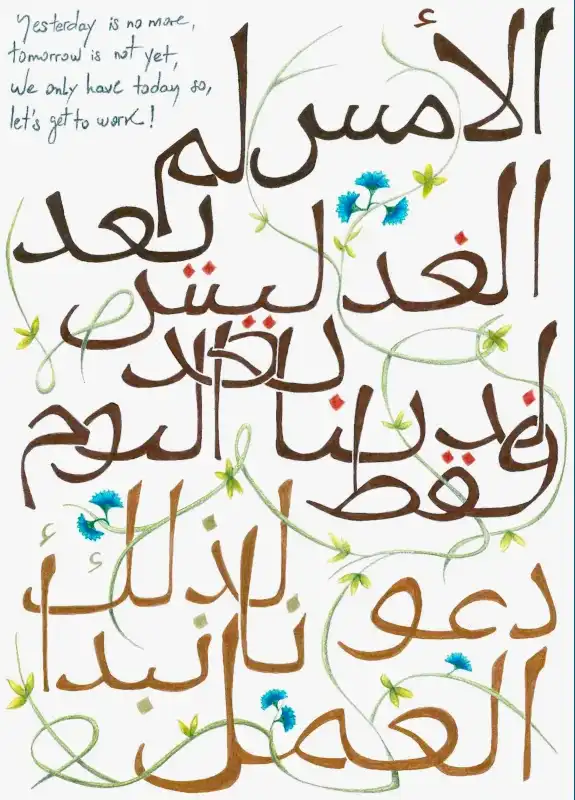 Yesterday is no more,
tomorrow is not yet,
we only have today so,
let's get to work!
الأمس لم
يعد
الغد ليس
بعد
لدينا اليوم
فقط لذلك
دعونا نبدأ
العمل